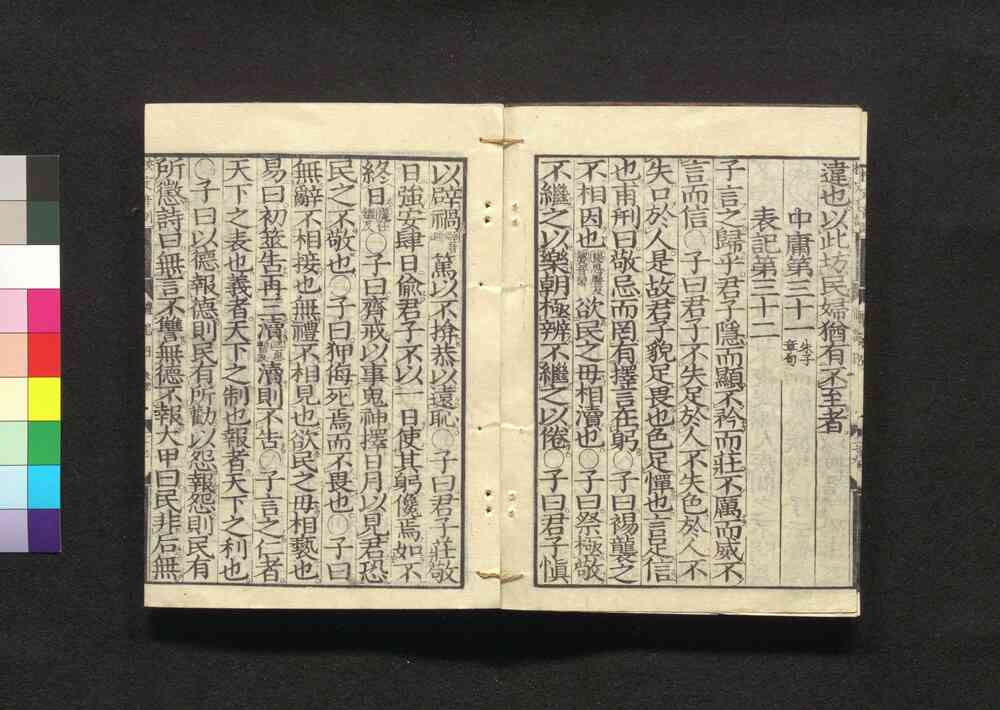 違也以此坊民婦猶有不至者
中庸第三十一 朱子章句
表記第三十二
子言之歸乎君子隱而顯不矜而莊不厲而威不
言而信○子曰君子不失足於人不失色於人不
失口於人是故君子貌足畏也色足憚也言足信
也甫刑曰敬忌而罔有擇言在躬○子曰裼襲之
不相因也欲民之毋相瀆也○子曰祭極敬
不繼之以樂朝極辨不繼之以倦○子曰君子愼
以辟禍篤以不揜恭以遠恥○子曰君子莊敬
日強安肆日偸君子不以一日使其躬儳焉如不
終日○子曰齊戒以事鬼神擇日月以見君恐
民之不敬也○子曰狎侮死焉而不畏也○子曰
無辭不相接也無禮不相見也欲民之毋相褻也
易曰初筮告再三瀆瀆則不告○子言之仁者
天下之表也義者天下之制也報者天下之利也
○子曰以德報德則民有所勸以怨報怨則民有
所懲詩曰無言不讐無德不報大甲曰民非后無